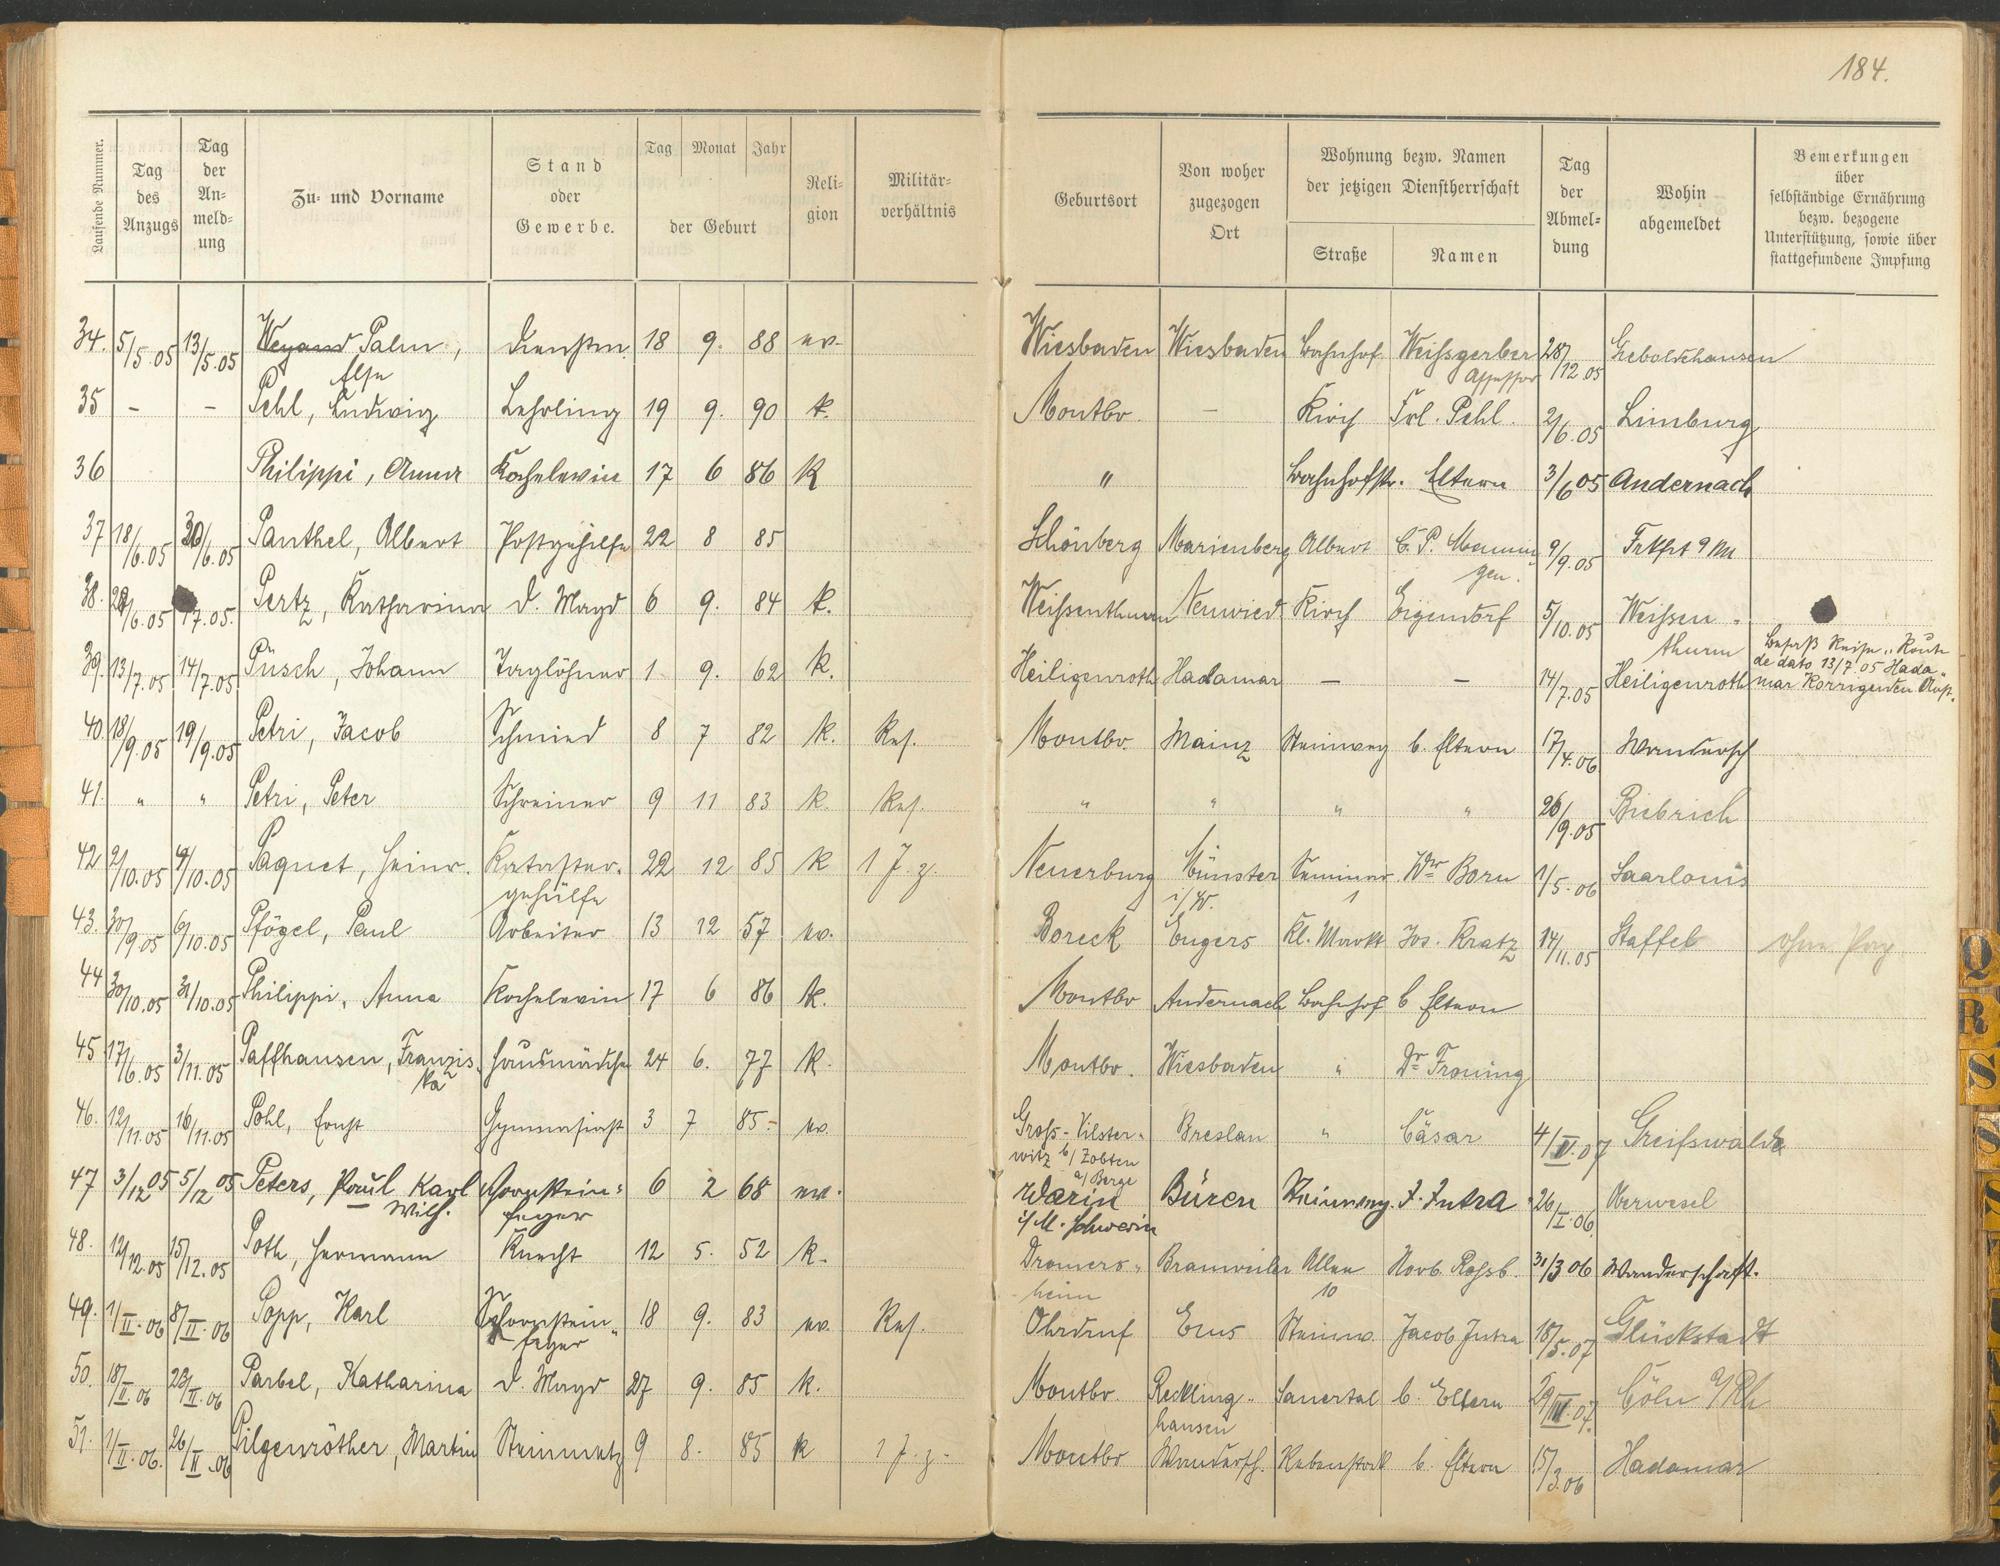 184.
Laufende Nummer.
Tag des Anzugs
Tag der An-meld-ung
Zu- und Vorname
Stand oder Gewerbe.
Tag Monat Jahr der Geburt
Reli-gion
Militär-verhältnis
Geburtsort
Von woher zugezogen Ort
Wohnung bezw. Namen der jetzigen Dienstherrschaft
Straße
Namen
Tag der Abmel-dung
Wohin abgemeldet
Bemerkungen über selbständige Ernährung bezw. bezogene Unterstützung, sowie über stattgefundene Impfung
34. 5/5.05 13/5.05 Weyand Palm, Else Dienstm. 18 9. 88 ev. Wiesbaden Wiesbaden Bahnhof Weißgerber Assessor 28/12 05 Gieboldehausen
35 – – Pehl, Ludwig Lehrling 19 9. 90 k. Montbr. – Kirch Frl. Pehl. 2/6.05 Limburg
36 Philippi, Anna Kochelevin 17 6 86 K " Bahnhofstr. Eltern 3/6 05 Andernach
37 18/6.05 30/6.05 Panthel, Albert Postgehilfe 22 8 85 Schönberg Marienberg Albert C. P. 9/9.05 Frkfrt a M
38. 29/6.05 17.05. Pertz, Katharina d. Magd 6 9. 84 k. Weißenthurm Neuwied Kirch Eigendorf 5/10.05 Weißen-thurm
39. 13/7.05 14/7.05 Püsch, Johann Taglöhner 1 9. 62 k. Heiligenroth Hadamar – – 14/7.05 Heiligenroth Besaß Reise-Route de dato 13/7 05 Hadamar Korrigenden Anst.
40. 18/9.05 19/9.05 Petri, Jacob Schmied 8 7 82 k. Res. Montbr. Mainz Steinweg b. Eltern 17/4.06 Wandersch
41. " " Petri, Peter Schreiner 9 11 83 k. Res. " " " " 26/9.05 Biebrich
42 2/10.05 4/10.05 Paquet, Heinr. Kataster-gehülfe 22 12 85 k 1 J. z. Neuerburg Münster i/W. Seminar 1 Wwe Born 1/5.06 Saarlouis
43. 30/9.05 6/10.05 Pfögel, Paul Arbeiter 13 12 57 ev. Boreck Engers Kl. Markt Jos. Kratz 14/11.05 Staffel ohne
44 30/10.05 31/10.05 Philippi, Anna Kochelevin 17 6 86 k. Montbr Andernach Bahnhof b Eltern
45 17/6.05 3/11.05 Paffhausen, Franzis-ka Hausmädche 24 6. 77 k. Montbr. Wiesbaden " Dr Froning
46. 12/11.05 16/11.05 Pohl, Ernst Gymnasiast 3 7 85.- ev. Groß-Vilster-witz b/ Zobten a/ Berge Breslau " Cäsar 4/IV.07 Greifswalde
47 3/12 05 5/12 05 Peters, Paul Karl Wilh. Schornstein-feger 6 2 68 ev. Warin i/M. Schwerin Büren Steinweg. J. Jutra 26/I.06 Oberwesel
48. 12/12.05 15/12.05 Poth, Hermann Knecht 12 5. 52 k. Dromers-heim Brauweiler Allee 10 Norb. Roßb. 31/3 06 Wanderschaft.
49. 1/II.06 8/II.06 Popp, Karl Schornstein-feger 18 9. 83 ev. Res. Ohrdruf Ems Steinw. Jacob Jutra 18/5.07 Glückstadt
50. 18/II.06 23/II.06 Parbel, Katharina d. Magd 27 9. 85 k. Montbr. Reckling-hausen Sauertal b. Eltern 29/III.07. Cöln a/Rh
51. 1/II.06. 26/II.06 Pilgenröther, Martin Steinmetz 9 8. 85 k 1 J. z. Montbr Wandersch. Rebenstock b. Eltern 15/3.06 Hadamar
Q
R
S